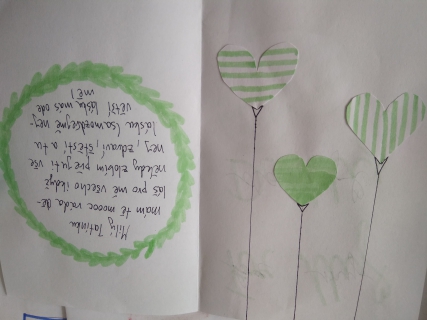 Milý Tatínku
mám tě moooc ráda dě-
láš pro mě všecho ikdyž
někdy zlobím přeju ti vše
nej, zdraví, štěstí a tu
lásku (samozdsejmě nej-
větší lásku máš ode
mě!